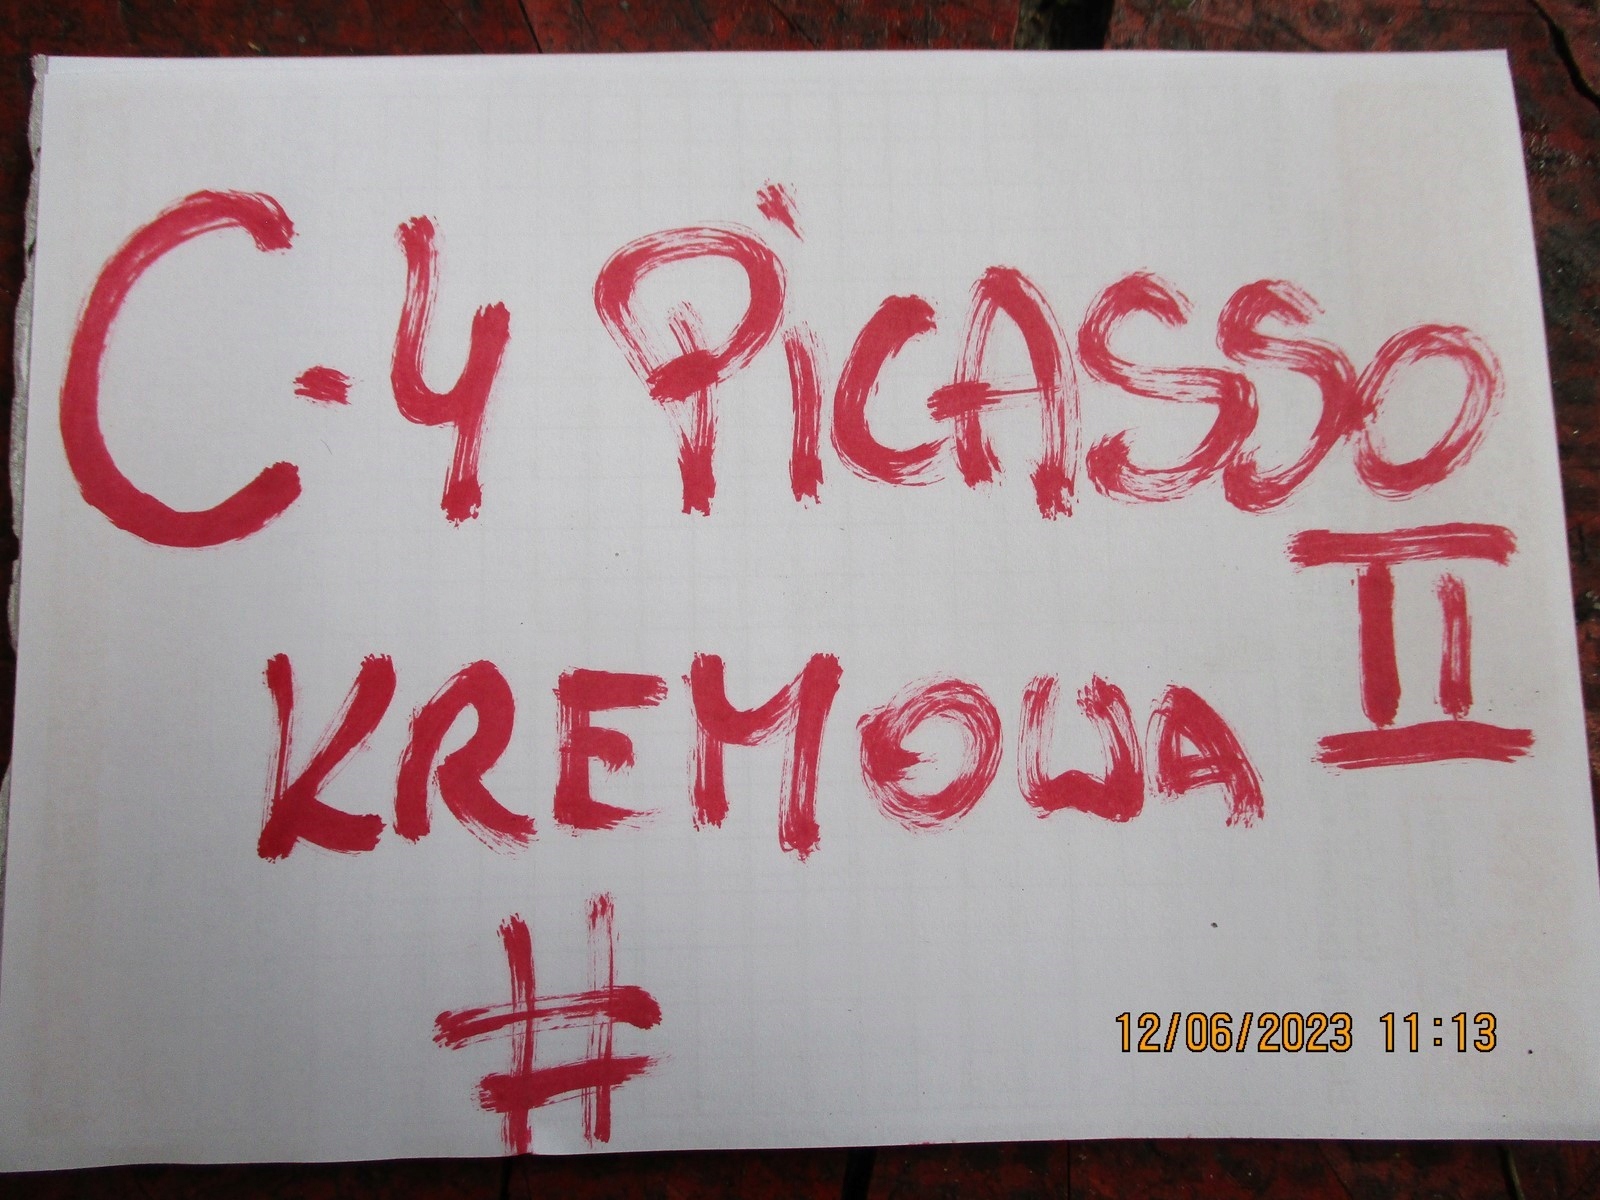 C-4 PiCASSO
II
KREMOWA
#
12/06/2023 11:13